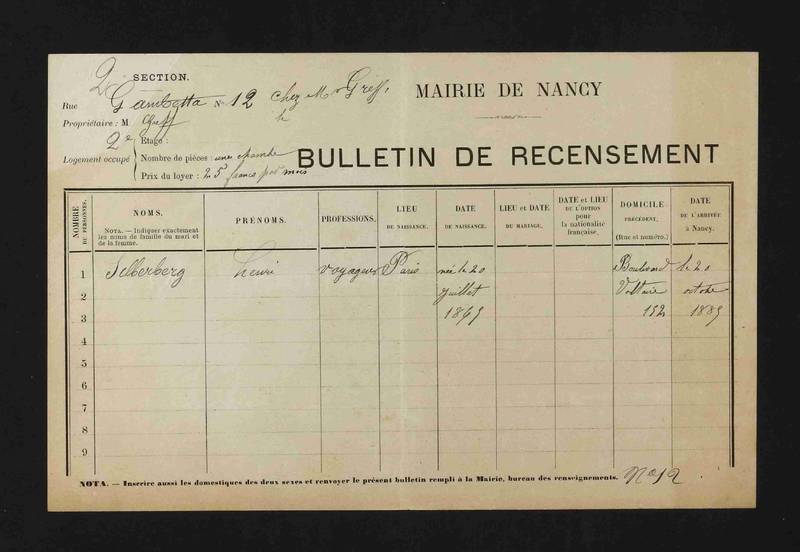 2e SECTION.
Rue Gambetta No 12 chez Mr Greff,
MAIRIE DE NANCY
Propriétaire : M Greff
2e Etage :
Logement occupé
Nombre de pièces : une chambre
Prix du loyer : 25 francs par mois
BULLETIN DE RECENSEMENT
NOMBRE DE PERSONNES.
NOMS.
NOTA. — Indiquer exactement les noms de famille du mari et de la femme.
PRÉNOMS.
PROFESSIONS.
LIEU DE NAISSANCE.
DATE DE NAISSANCE.
LIEU et DATE DU MARIAGE.
DATE et LIEU DE L'OPTION pour la nationalité française.
DOMICILE PRÉCÉDENT. (Rue et numéro.)
DATE DE L'ARRIVÉE à Nancy.
1 Silberberg henri voyageur Paris née le 20 Boulevard le 20
2 juillet Voltaire octobre
3 1869 152 1889
4
5
6
7
8
9
NOTA. — Inscrire aussi les domestiques des deux sexes et renvoyer le présent bulletin rempli à la Mairie, bureau des renseignements.